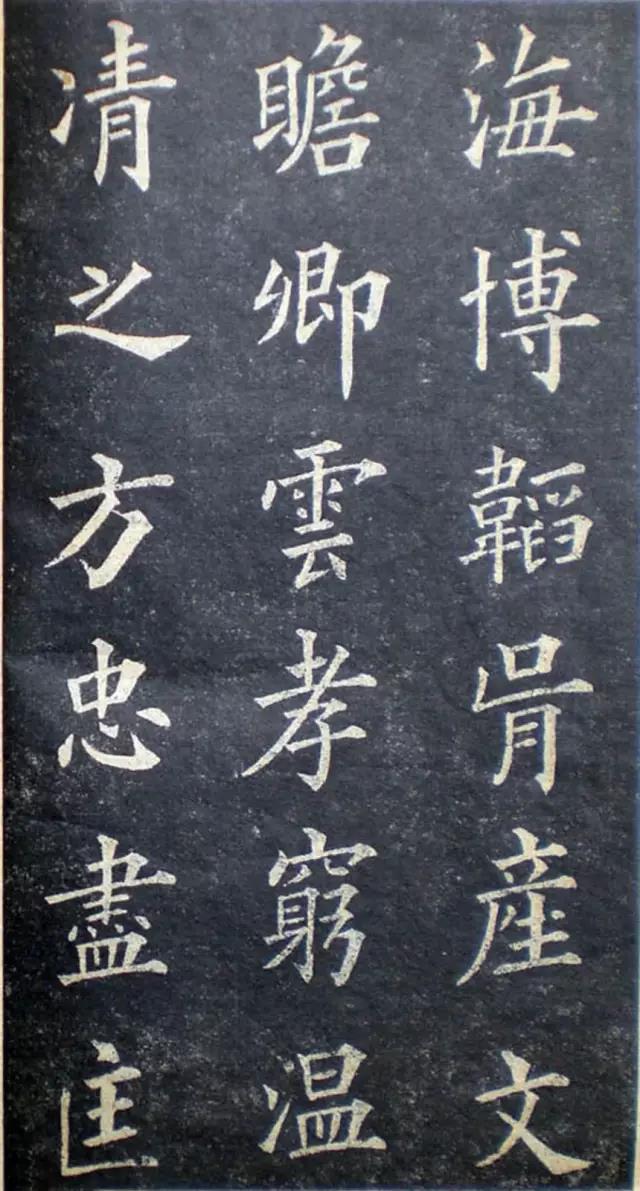 海博韜胥產文
瞻卿雲孝窮温
凊之方忠盡匡